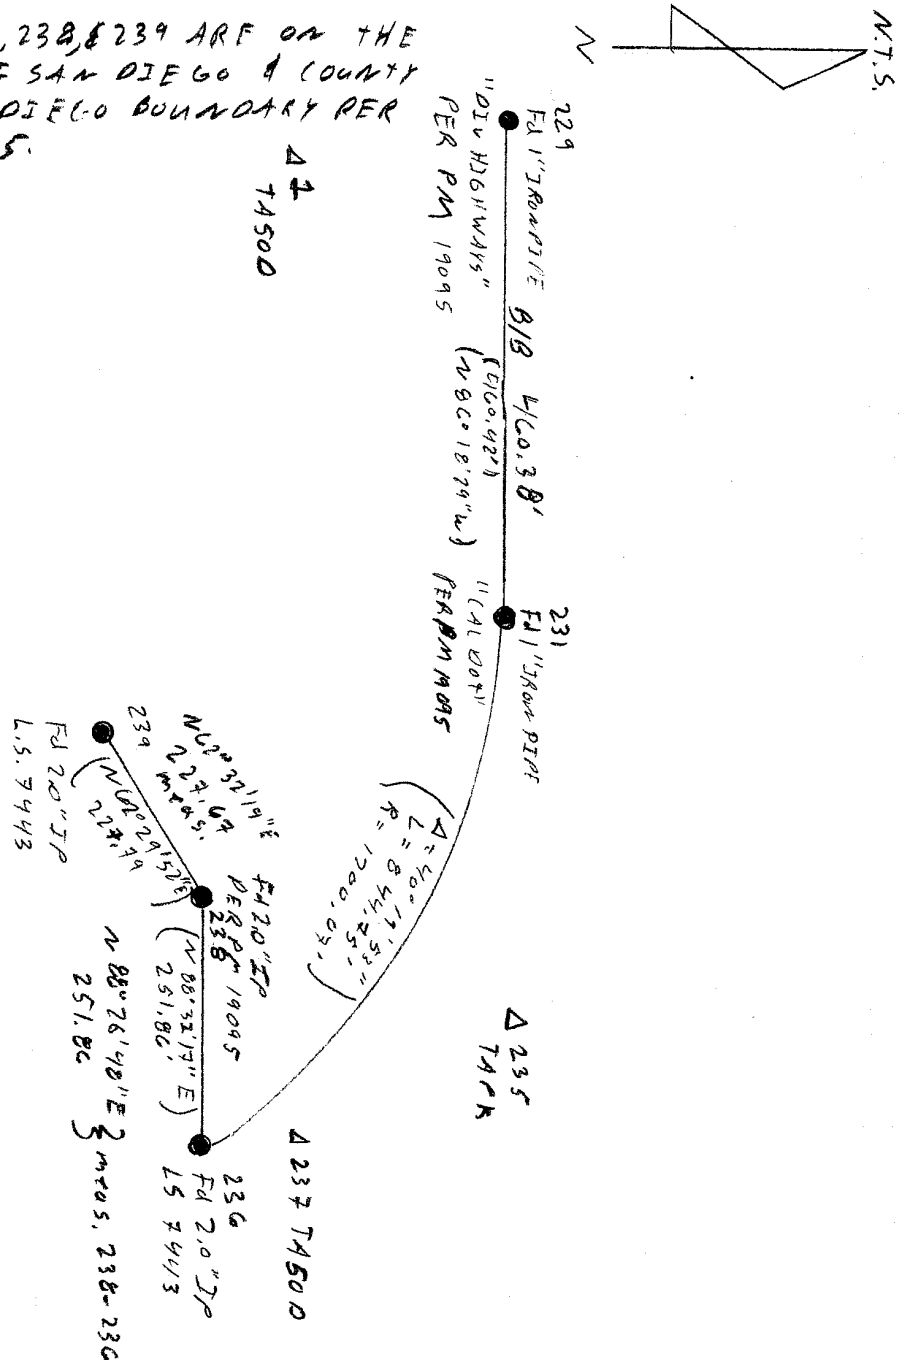 , 238, & 239 ARE ON THE
F SAN DIEGO & COUNTY
DIEGO BOUNDARY PER
5.
N.T.S.
N
Δ 1
TA500
229
Fd 1" IRON PIPE
"DIV HIGHWAYS"
PER PM 19095
B/B 460.38'
(460.42')
(N86°18'29"W)
231
Fd 1" IRON PIPE
"CAL DOT"
PER PM 19095
(Δ=40°19'53"
L=844.75'
R=1200.07')
Δ 235
TAPK
239
Fd 2.0" IP
L.S. 7443
N62°32'19"E
227.67
meas.
(N62°29'52"E)
227.79
Fd 2.0" IP
PER PM 19095
238
(N88°32'17"E)
251.86'
N 88°26'48"E
251.86
} meas. 238-236
236
Fd 2.0" IP
LS 7443
Δ 237 TA500